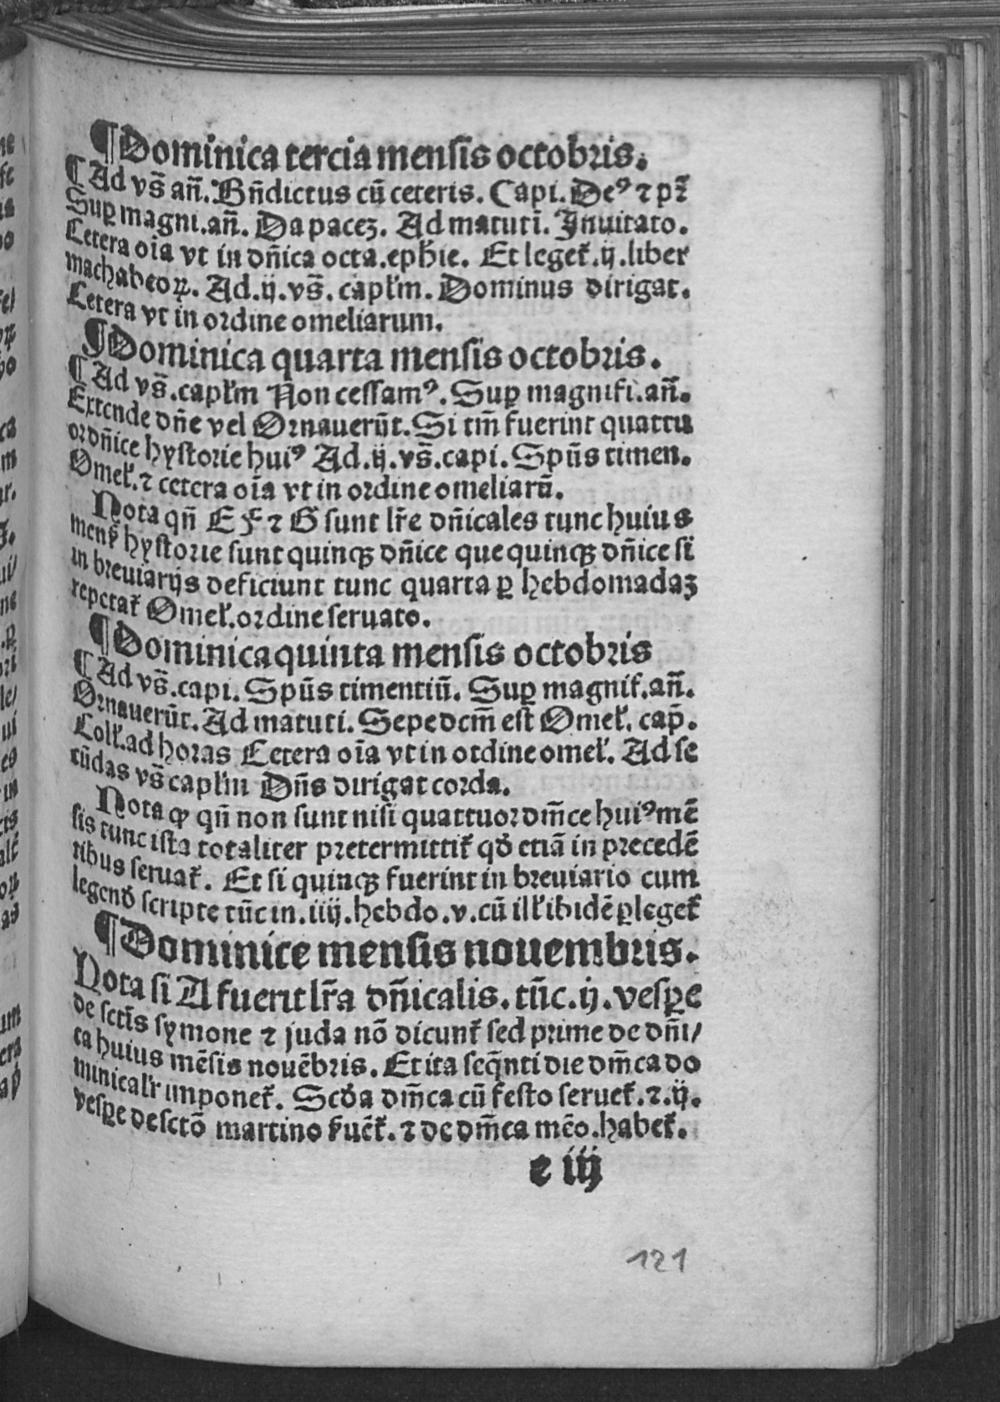 ¶Dominica tercia mensis octobris.
¶Ad vs̄ an̄. Bn̄dictus cū ceteris. Capi. Deꝰ ⁊ pr̄
Suꝑ magni. an̄. Da paceꝫ. Ad matutī. Inuitato.
Cetera oīa vt in dn̄ica octa. ephīe. Et legeſ. ij. liber
machabeoꝝ. Ad. ij. vs̄. capl̄m. Dominus dirigat.
Cetera vt in ordine omeliarum.
¶Dominica quarta mensis octobris.
¶Ad vs̄. capl̄m Non cessamꝰ. Suꝑ magnifi. an̄.
Extende dn̄e vel Ornauerūt. Si tm̄ fuerint quattu
or dn̄ice hystorie huiꝰ Ad. ij. vs̄. capi. Spūs timen.
Omel̄. ⁊ cetera oīa vt in ordine omeliarū.
Nota qn̄ E F ⁊ G sunt lr̄e dn̄icales tunc huius
menſ hystorie sunt quinqꝫ dn̄ice que quinqꝫ dn̄ice si
in breuiarijs deficiunt tunc quarta ꝑ hebdomadaꝫ
repetat̄ Omel̄. ordine seruato.
¶Dominica quinta mensis octobris
¶Ad vs̄. capi. Spūs timentiū. Suꝑ magnif̄. an̄.
Ornauerūt. Ad matuti. Sepedcm̄ est Omel̄. cap̄.
Coll̄. ad horas Cetera oīa vt in ordine omel̄. Ad se
cūdas vs̄ capl̄m Dn̄s dirigat corda.
Nota ꝙ qn̄ non sunt nisi quattuor dm̄ce huiꝰ mē
sis tunc ista totaliter pretermittit̄ qd̄ etiā in precedē
tibus seruat̄. Et si quinqꝫ fuerint in breuiario cum
legend̄ scripte tūc in. iiij. hebdo. v. cū ill̄ ibidē ꝑleget̄
¶Dominice mensis nouembris.
Nota si A fuerit lr̄a dn̄icalis. tūc. ij. vesꝑe
de sctīs symone ⁊ juda nō dicunt̄ sed prime de dn̄i/
ca huius mēsis nouēbris. Et ita seq̄nti die dm̄ca do
minical̄r imponet̄. Scd̄a dm̄ca cū festo seruet̄. ⁊. ij.
vesꝑe de sctō martino fuēt̄. ⁊ de dm̄ca mēo. habet̄.
e iij
121